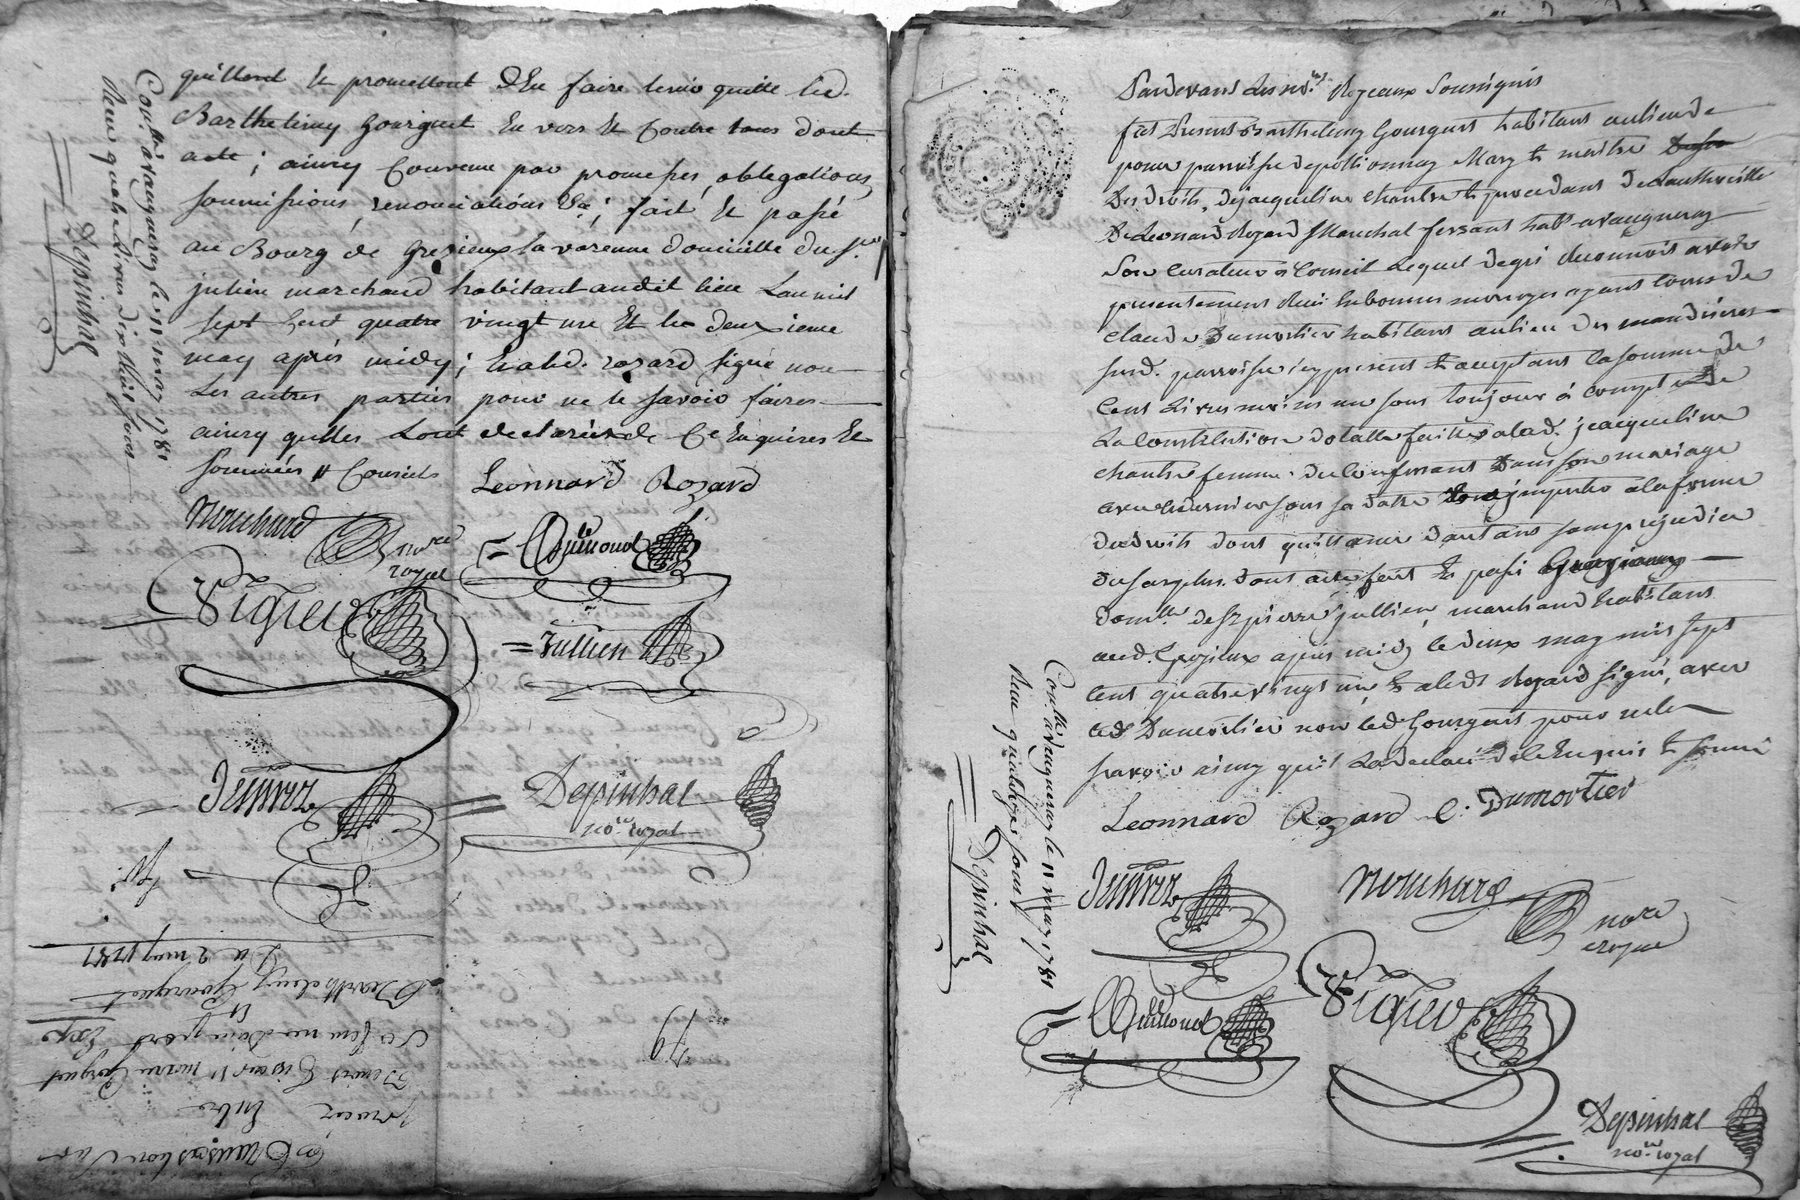 quittent et promettent d'en faire tenir quitte led.
Barthelemy Gourguet en vers et contre tous dont
acte; ainsy convenu par promesses, obligations,
soumissions, renonciations &a; fait et passé
au Bourg de Grezieu la varenne domicille du sr.
julien marchand habitant audit lieu L'an mil
sept cent quatre vingt un et le deuxieme
may après midy; et a led. rozard signé non
les autres parties pour ne le savoir faire
ainsy qu'elles l'ont declaré de ce enquises et
sommées // Conseils
Leonnard Rozard
Marchand
nore
royal
Guimond
Vigier
= Jullien
Depinhac
no.re royal
Con.llé a vaugneray le 11 may 1781
Reçu quatre Livres dix huit sous
Depinhac
Du 2 may 1781
Barthelemy Gourguet
et
sa femme
entre
Transaction sur
procez
79
Pardevant les no.res Royeaux Soussignés
fut present Barthelemy Gourguet habitant au lieu de
pour parroisse de pollionnay Mary et maitre
des droits de jacqueline chantre et procedant de L'authorité
De Leonard Rozard Marechal ferrant hab.t a vaugneray
son curateur a conseil Lequel de gré a reconnu avoir
presentement reçu en bonnes monoyes ayant cours de
claude Dumortier habitant au lieu des
sud. parroisse icy present et acceptant la somme de
cent Livres moins un sous toujour à compte de
La constitution dotalle faitte a lad. jacqueline
chantre femme du confessant Dans son mariage
avec ce dernier sous sa datte a la forme
du droit dont quittance d'autant sans prejudice
du surplus. dont acte fait et passé
dom.lle de sr pierre jullien, marchand habitant
aud. Grezieux apres midy le deux may mil sept
cent quatre vingt un et a led. Rozard signé, avec
led. Dumortier non led. Gourguet pour ne le
savoir ainsy qu'il La declaré de ce Enquis et sommé
Leonnard Rozard C. Dumortier
Marchand
nore
royal
Guimond
Vigier
Depinhac
no.re royal
Con.llé a vaugneray le 11 may 1781
Reçu quatorze sous
Depinhac